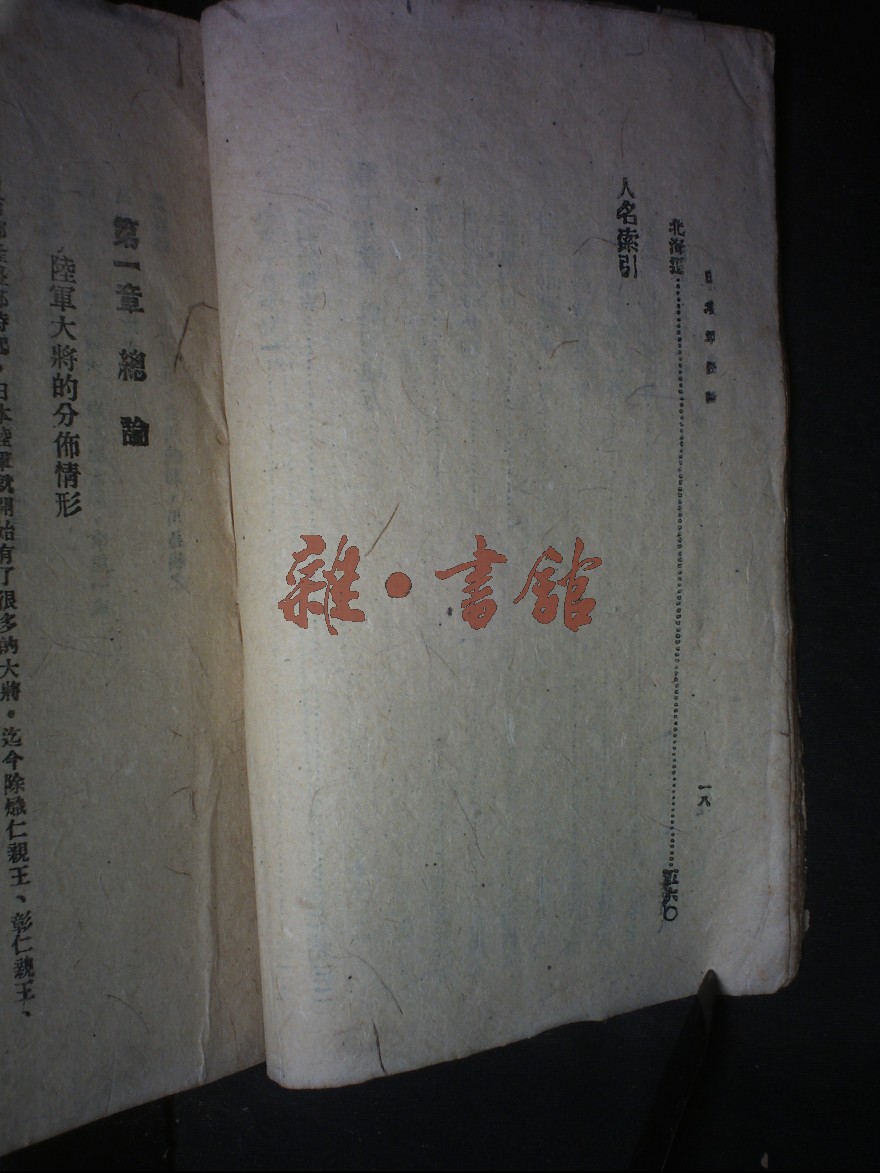 一八
北海道……………………五六〇
人名索引
雜·書館
第一章 總論
陸軍大將的分佈情形
日本陸軍就開始有了很多的大將。迄今除熾仁親王、彰仁親王、